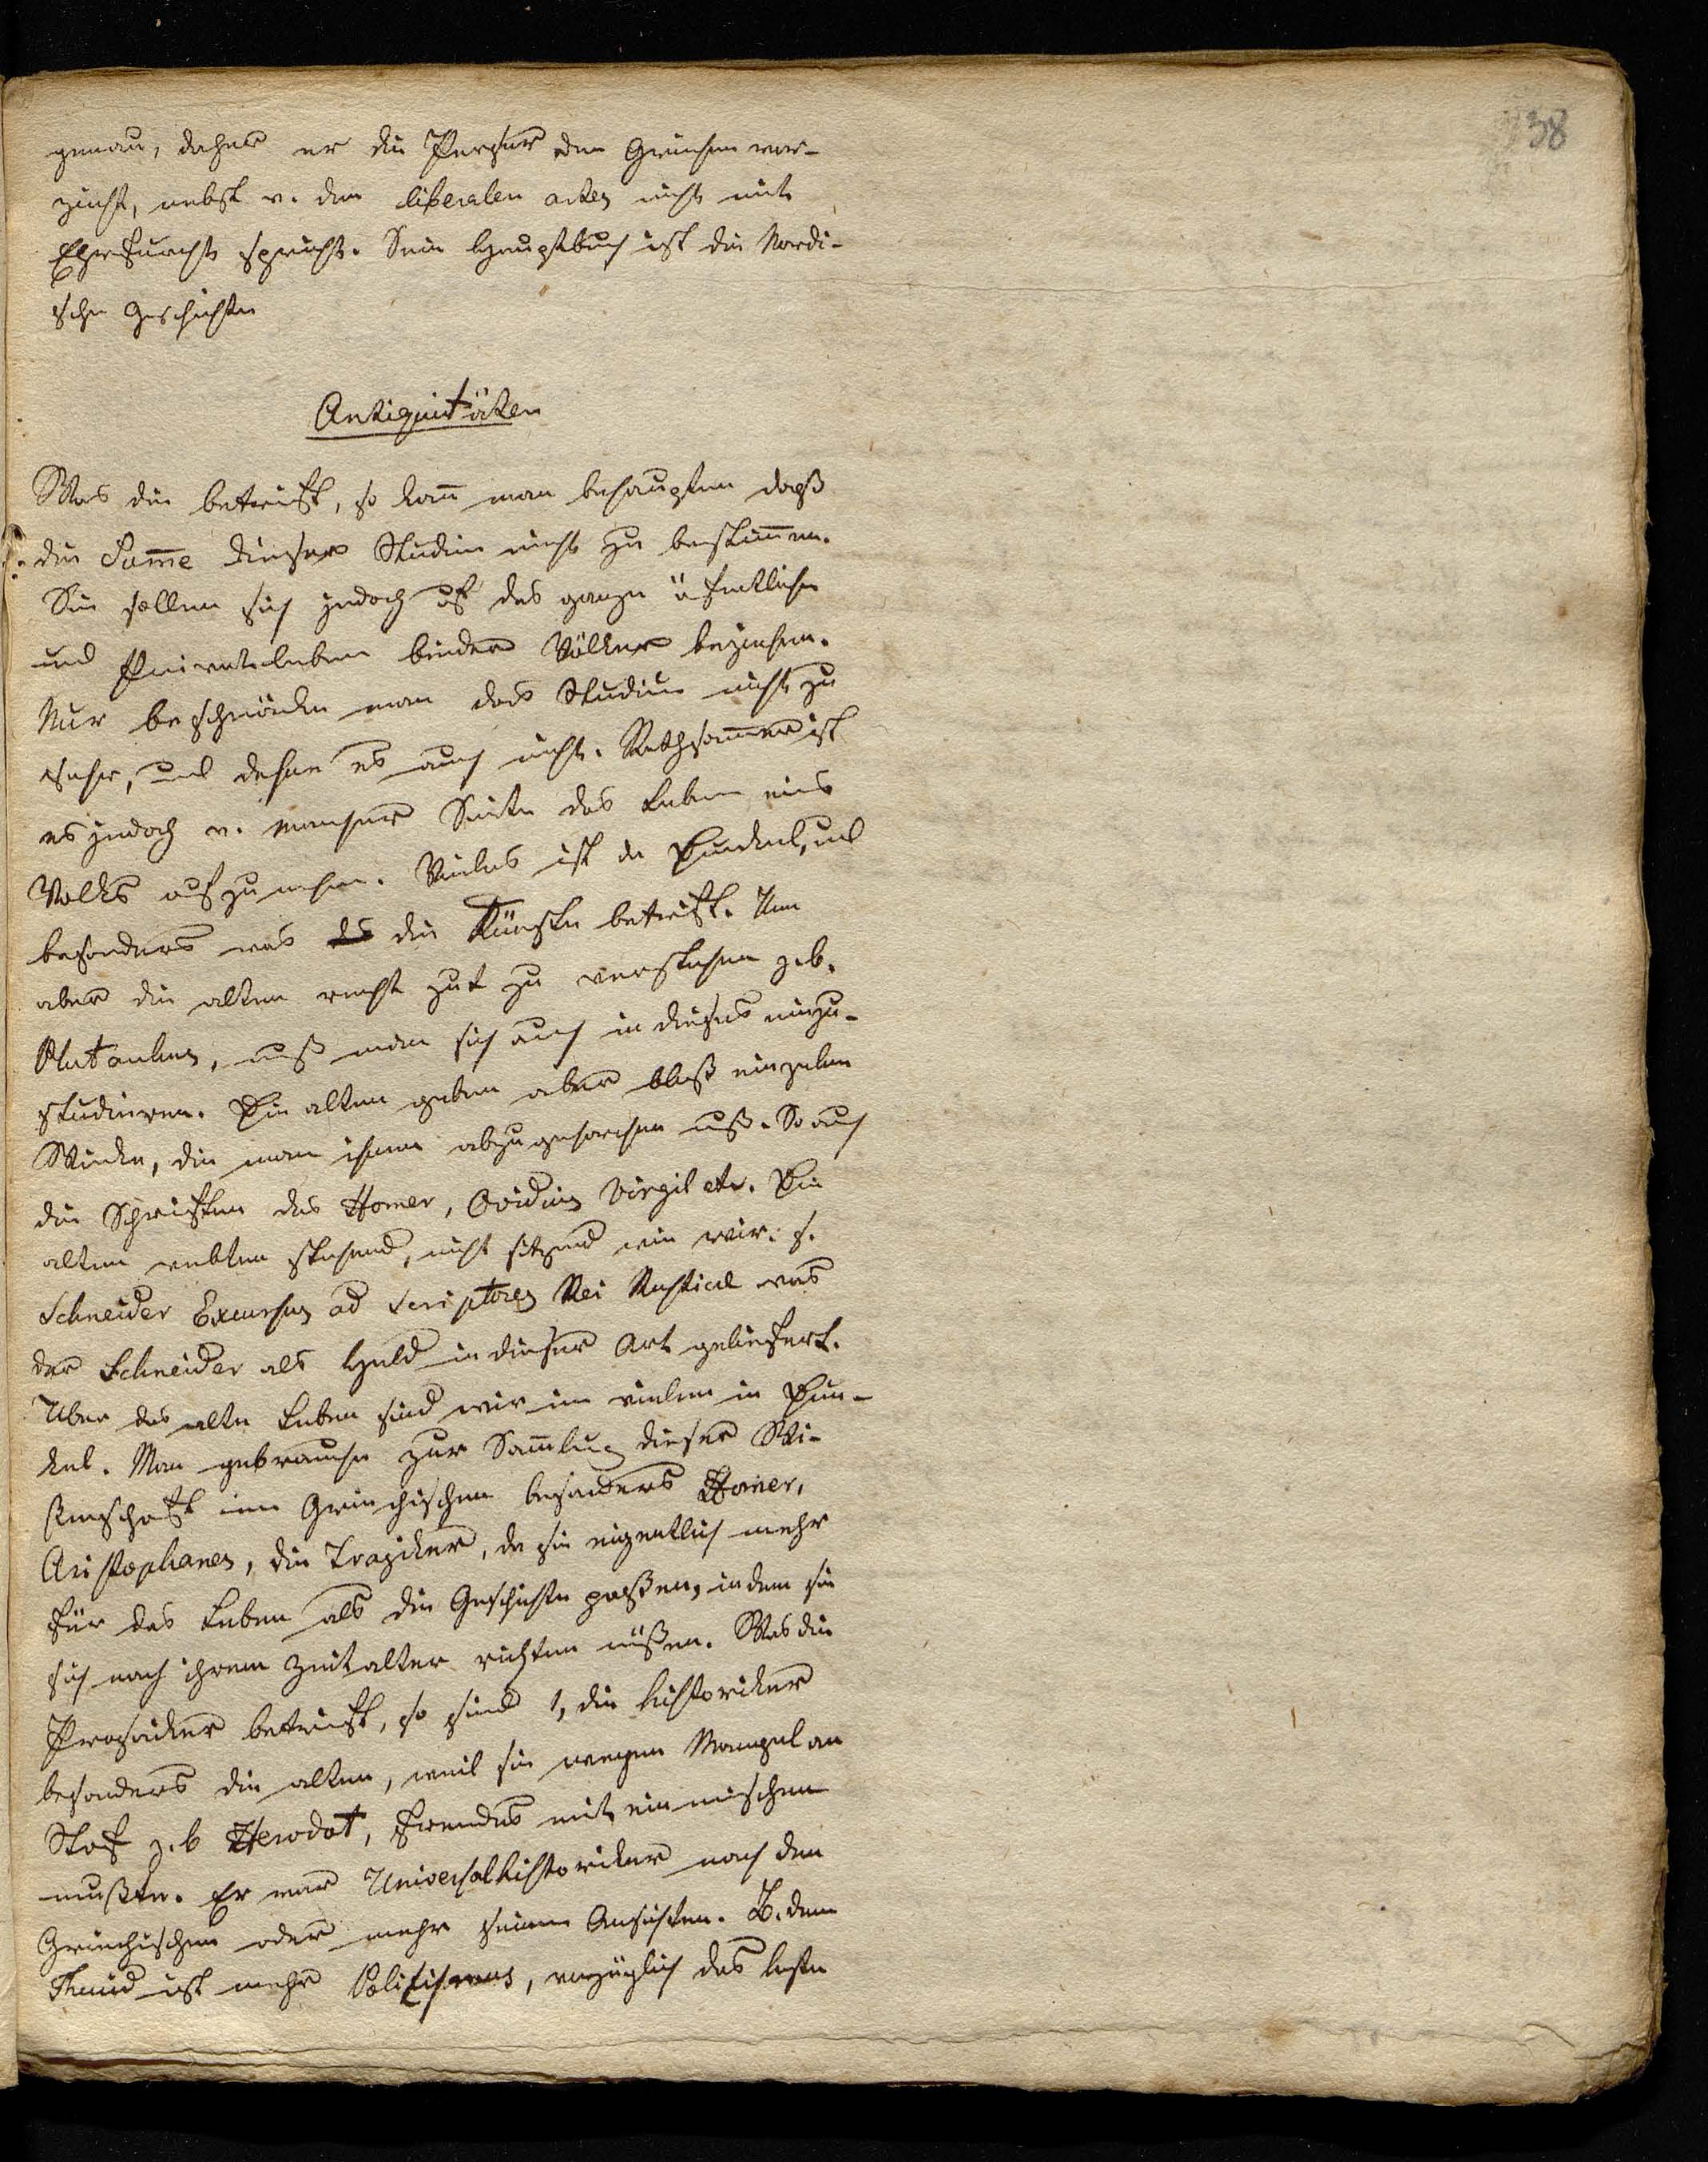 38
genau, daher er die Perser den Griechen vor-
zieht, nebst v. den liberalen artes nicht mit
Ehrfurcht spricht. Sein Hauptbuch ist die Nordi-
sche Geschichte
Antiquitäten
Was die betrift, so kan̅ man behaupten daß
die Sum̅e dieser Studien nicht zu bestim̅en.
Sie sollen sich jedoch auf das ganze öfentliche
und Privatleben beider Völker beziehen.
Nur beschränke man das Studium nicht zu
sehr, und dehne es auch nicht. Rathsam̅er ist
es jedoch v. mancher Seite das Leben eines
Volks aufzunehmen. Vieles ist da Dunkel, und
besonders was die Künste betrift. Um
aber die alten recht gut zu verstehen z.b.
Plutarchus, muß man sich auch in dieses einzu-
studieren. Die alten geben aber bloß einzelne
Winke, die man ihnen abzugehorchen muß. So auch
die Schriften des Homer, Ovidius Virgil etc. Die
alten webten stehend, nicht sitzend wie wir. s.
Schneider Excursus ad Scriptores Rei Rusticae was
der Schneider als Held in dieser Art geliefert.
Uber das alte Leben sind wir im vielen in Dun-
kel. Man gebrauche zur Sam̅lung dieser Wi-
ssenschaft im Griechischen besonders Homer,
Aristophanes, die Tragiker, da sie eigentlich mehr
für das Leben als die Geschichte paßen, indem sie
sich nach ihrem Zeitalter richten müßen. Was die
Prosaiker betrift, so sind 1, die Historiker
besonders die alten, weil sie wegen Mangel an
Stof z.b Herodot, fremdes mit einmischen
mußten. Er war Universalhistoriker nach den
Griechischen oder mehr seinen Ansichten. B. dem
Thucid ist mehr Politismus, vorzüglich das beste